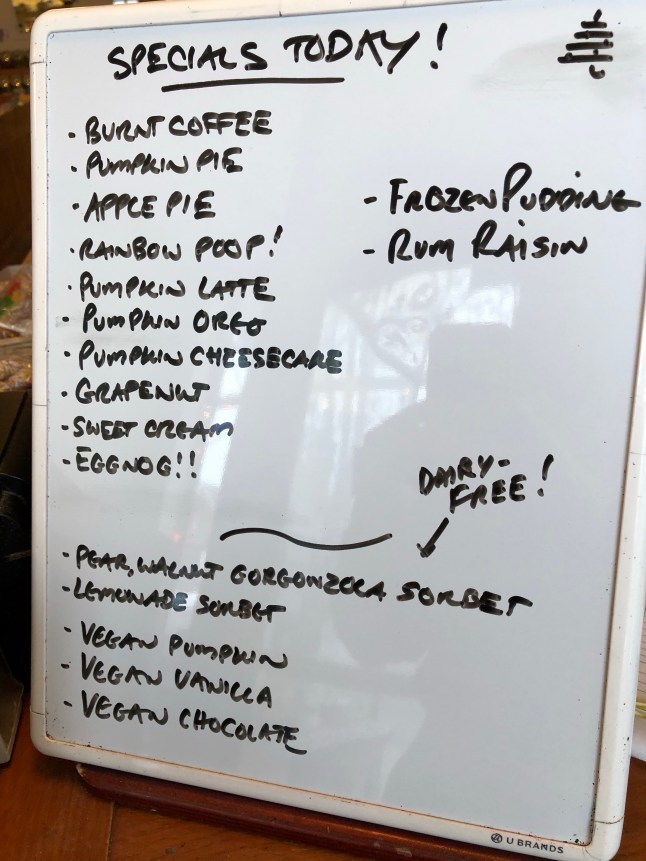 SPECIALS TODAY!
· BURNT COFFEE
· PUMPKIN PIE
· APPLE PIE
· RAINBOW POOP!
· PUMPKIN LATTE
· PUMPKIN OREO
· PUMPKIN CHEESECAKE
· GRAPENUT
- SWEET CREAM
- EGGNOG!!
- FROZEN PUDDING
- RUM RAISIN
DAIRY-
FREE!
- PEAR, WALNUT GORGONZOLA SORBET
- LEMONADE SORBET
- VEGAN PUMPKIN
- VEGAN VANILLA
- VEGAN CHOCOLATE
U BRANDS